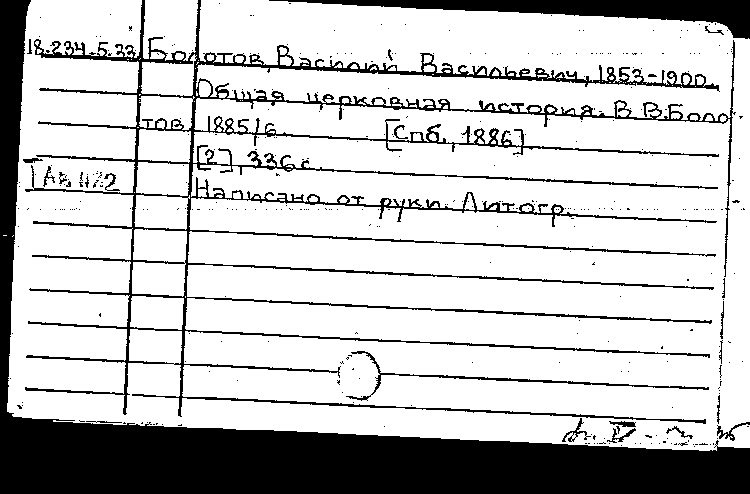 18.234.5.33 Болотов, Василий Васильевич, 1853-1900.
Общая церковная история. В.В.Боло-
тов. 1885/6. [Спб., 1886].
[2], 336 с.
Написано от руки. Литогр.